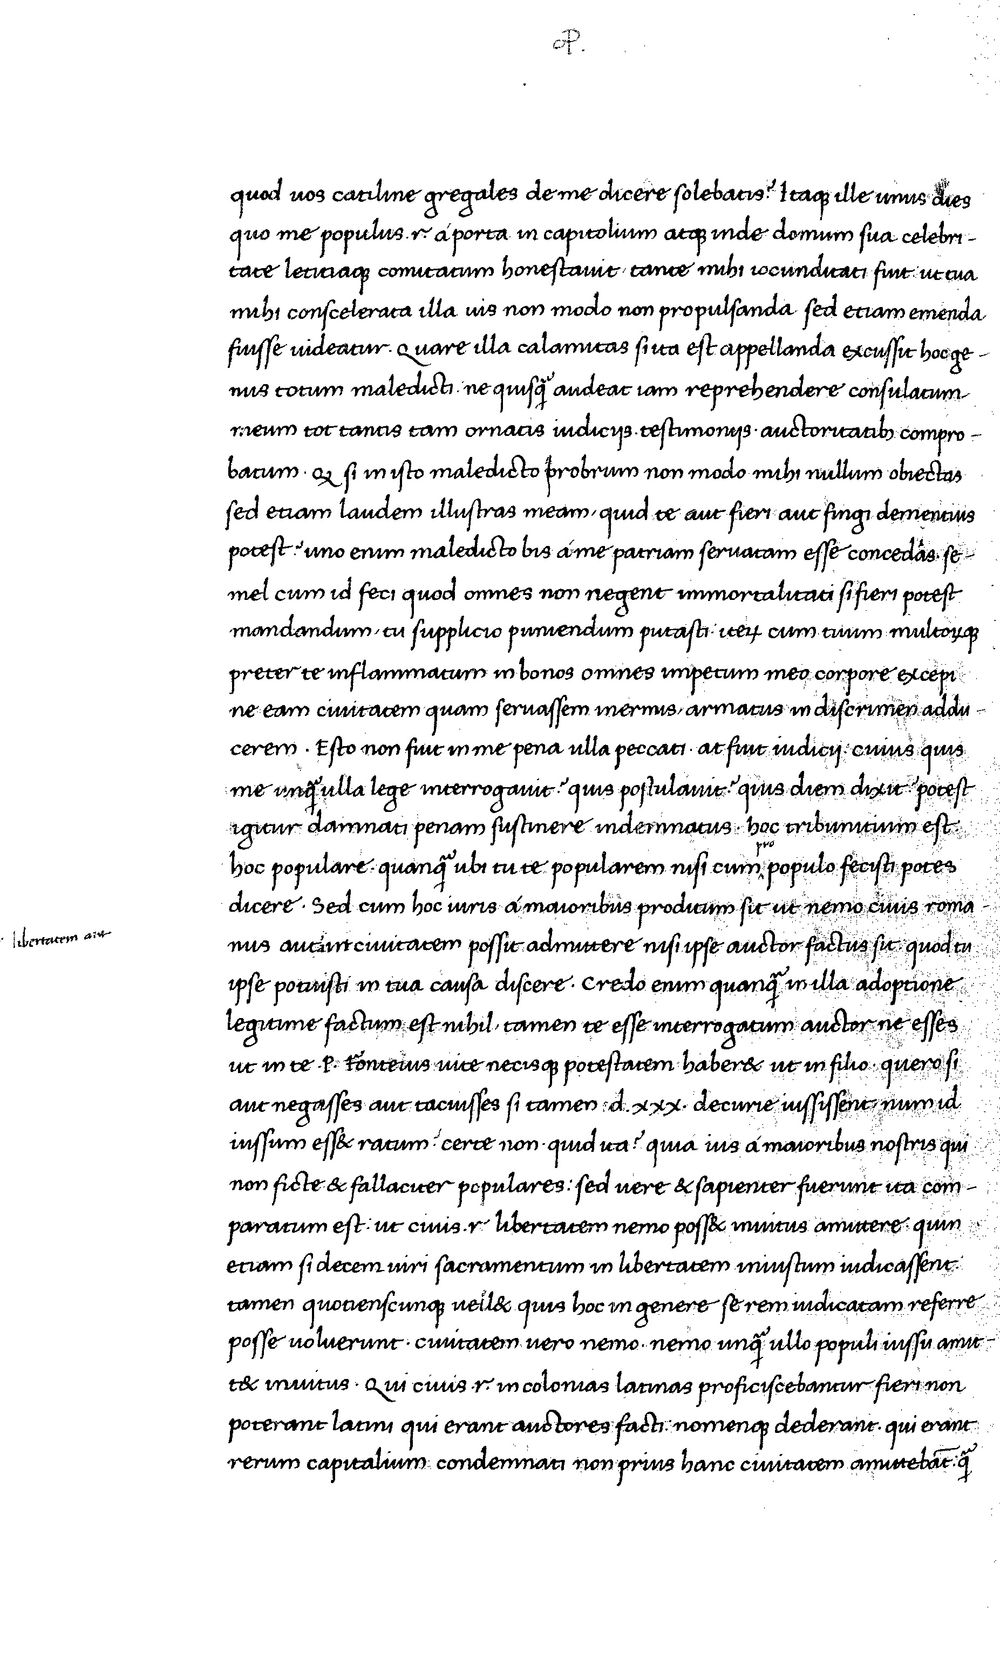 OP.
quod uos catiline gregales de me dicere solebatis? Itaq; ille unus dies
quo me populus .r. á porta in capitolium atq; inde domum sua celebri-
tate letitiaq; comitatum honestauit, tante mihi iocunditati fuit: ut tua
mihi conscelerata illa uis non modo non propulsanda sed etiam emenda
fuisse uideatur. Quare illa calamitas si ita est appellanda excussit hoc ge-
nus totum maledicti. ne quisq̃ audeat iam reprehendere consulatum
meum tot tantis tam ornatis iudicijs. testimonijs. auctoritatib; compro-
batum. Q si in isto maledicto probrum non modo mihi nullum obiectas
sed etiam laudem illustras meam, quid te aut fieri aut fingi dementius
potest? uno enim maledicto bis á me patriam seruatam esse concedas. se-
mel cum id feci quod omnes non negent immortalitati si fieri potest
mandandum, tu supplicio puniendum putasti. iteꝝ cum tuum multoꝝq;
preter te inflammatum in bonos omnes impetum meo corpore excepi
ne eam ciuitatem quam seruassem inermis, armatus in discrimen addu-
cerem. Esto non fuit in me pena ulla peccati. at fuit iudicij. cuius quis
me unq̃ ulla lege interrogauit? quis postulauit? quis diem dixit? potest
igitur damnati penam sustinere indemnatus. hoc tribunitium est.
pro
hoc populare. quanq̃ ubi tu te popularem nisi cum populo fecisti potes
dicere. Sed cum hoc iuris á maioribus proditum sit ut nemo ciuis roma-
libertatem aut
nus aut ciuitatem possit admittere nisi ipse auctor factus sit. quod tu
ipse potuisti in tua causa discere. Credo enim quanq̃ in illa adoptione
legitime factum est nihil, tamen te esse interrogatum auctor ne esses
ut in te .P. Fonteius uite necisq; potestatem haber& ut in filio. quero si
aut negasses aut tacuisses si tamen .d. xxx. decurie iussissent, num id
iussum ess& ratum? certe non. quid ita? quia ius á maioribus nostris qui
non ficte & fallaciter populares: sed uere & sapienter fuerunt ita com-
paratum est: ut ciuis .r. libertatem nemo poss& inuitus amittere. quin
etiam si decem uiri sacramentum in libertatem iniustum iudicassent.
tamen quotienscunq; uell& quis hoc in genere se rem iudicatam referre
posse uoluerunt. ciuitatem uero nemo. nemo unq̃ ullo populi iussu amit-
t& inuitus. Qui ciuis .r. in colonias latinas proficiscebantur fieri non
poterant latini qui erant auctores facti. nomenq; dederant. qui erant
rerum capitalium condemnati non prius hanc ciuitatem amittebãt. q̃